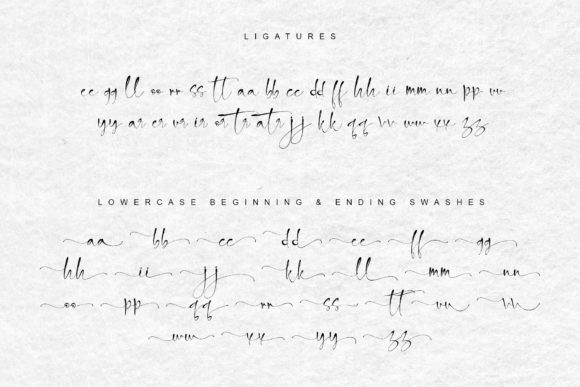 LIGATURES
cc gg ll oo rr ss tt aa bb cc dd ff hh ii mm nn pp uu
yy ar er ur ir or tr atr jj kk qq vv ww xx zz
LOWERCASE BEGINNING & ENDING SWASHES
aa bb cc dd ee ff gg
hh ii jj kk ll mm nn
oo pp qq rr ss tt uu vv
ww xx yy zz